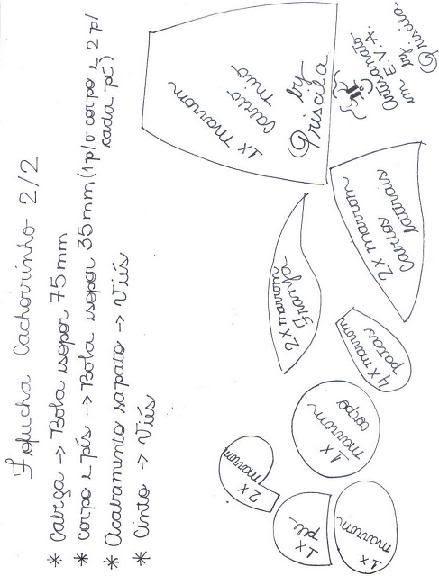 Fofucha Cachorrinho 2/2
* Cabeça -> Bola isopor 75mm
* corpo e pés -> Bola isopor 35mm (1p/o corpo e 2 p/
cada pé)
* Acabamento sapato -> Viés
* Cinto -> Viés
1x marrom
by
Priscila
Artesanato
em E.V.A.
by
Priscila
2x marrom
laterais
2x marrom
Franja
4x marrom
patas
1x
marrom
corpo
2x
marrom
1x
pé
1x
marrom